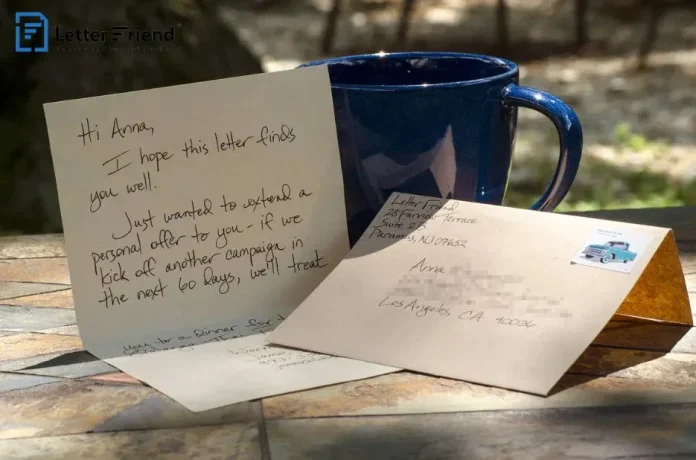 Letter Friend
Hi Anna,
I hope this letter finds
you well.
Just wanted to extend a
personal offer to you - if we
kick off another campaign in
the next 60 days, we'll treat
you to a Dinner for
Letter Friend
Terrace
Suite 213
Paramus, NJ 07652
Anna
Los Angeles, CA 90036